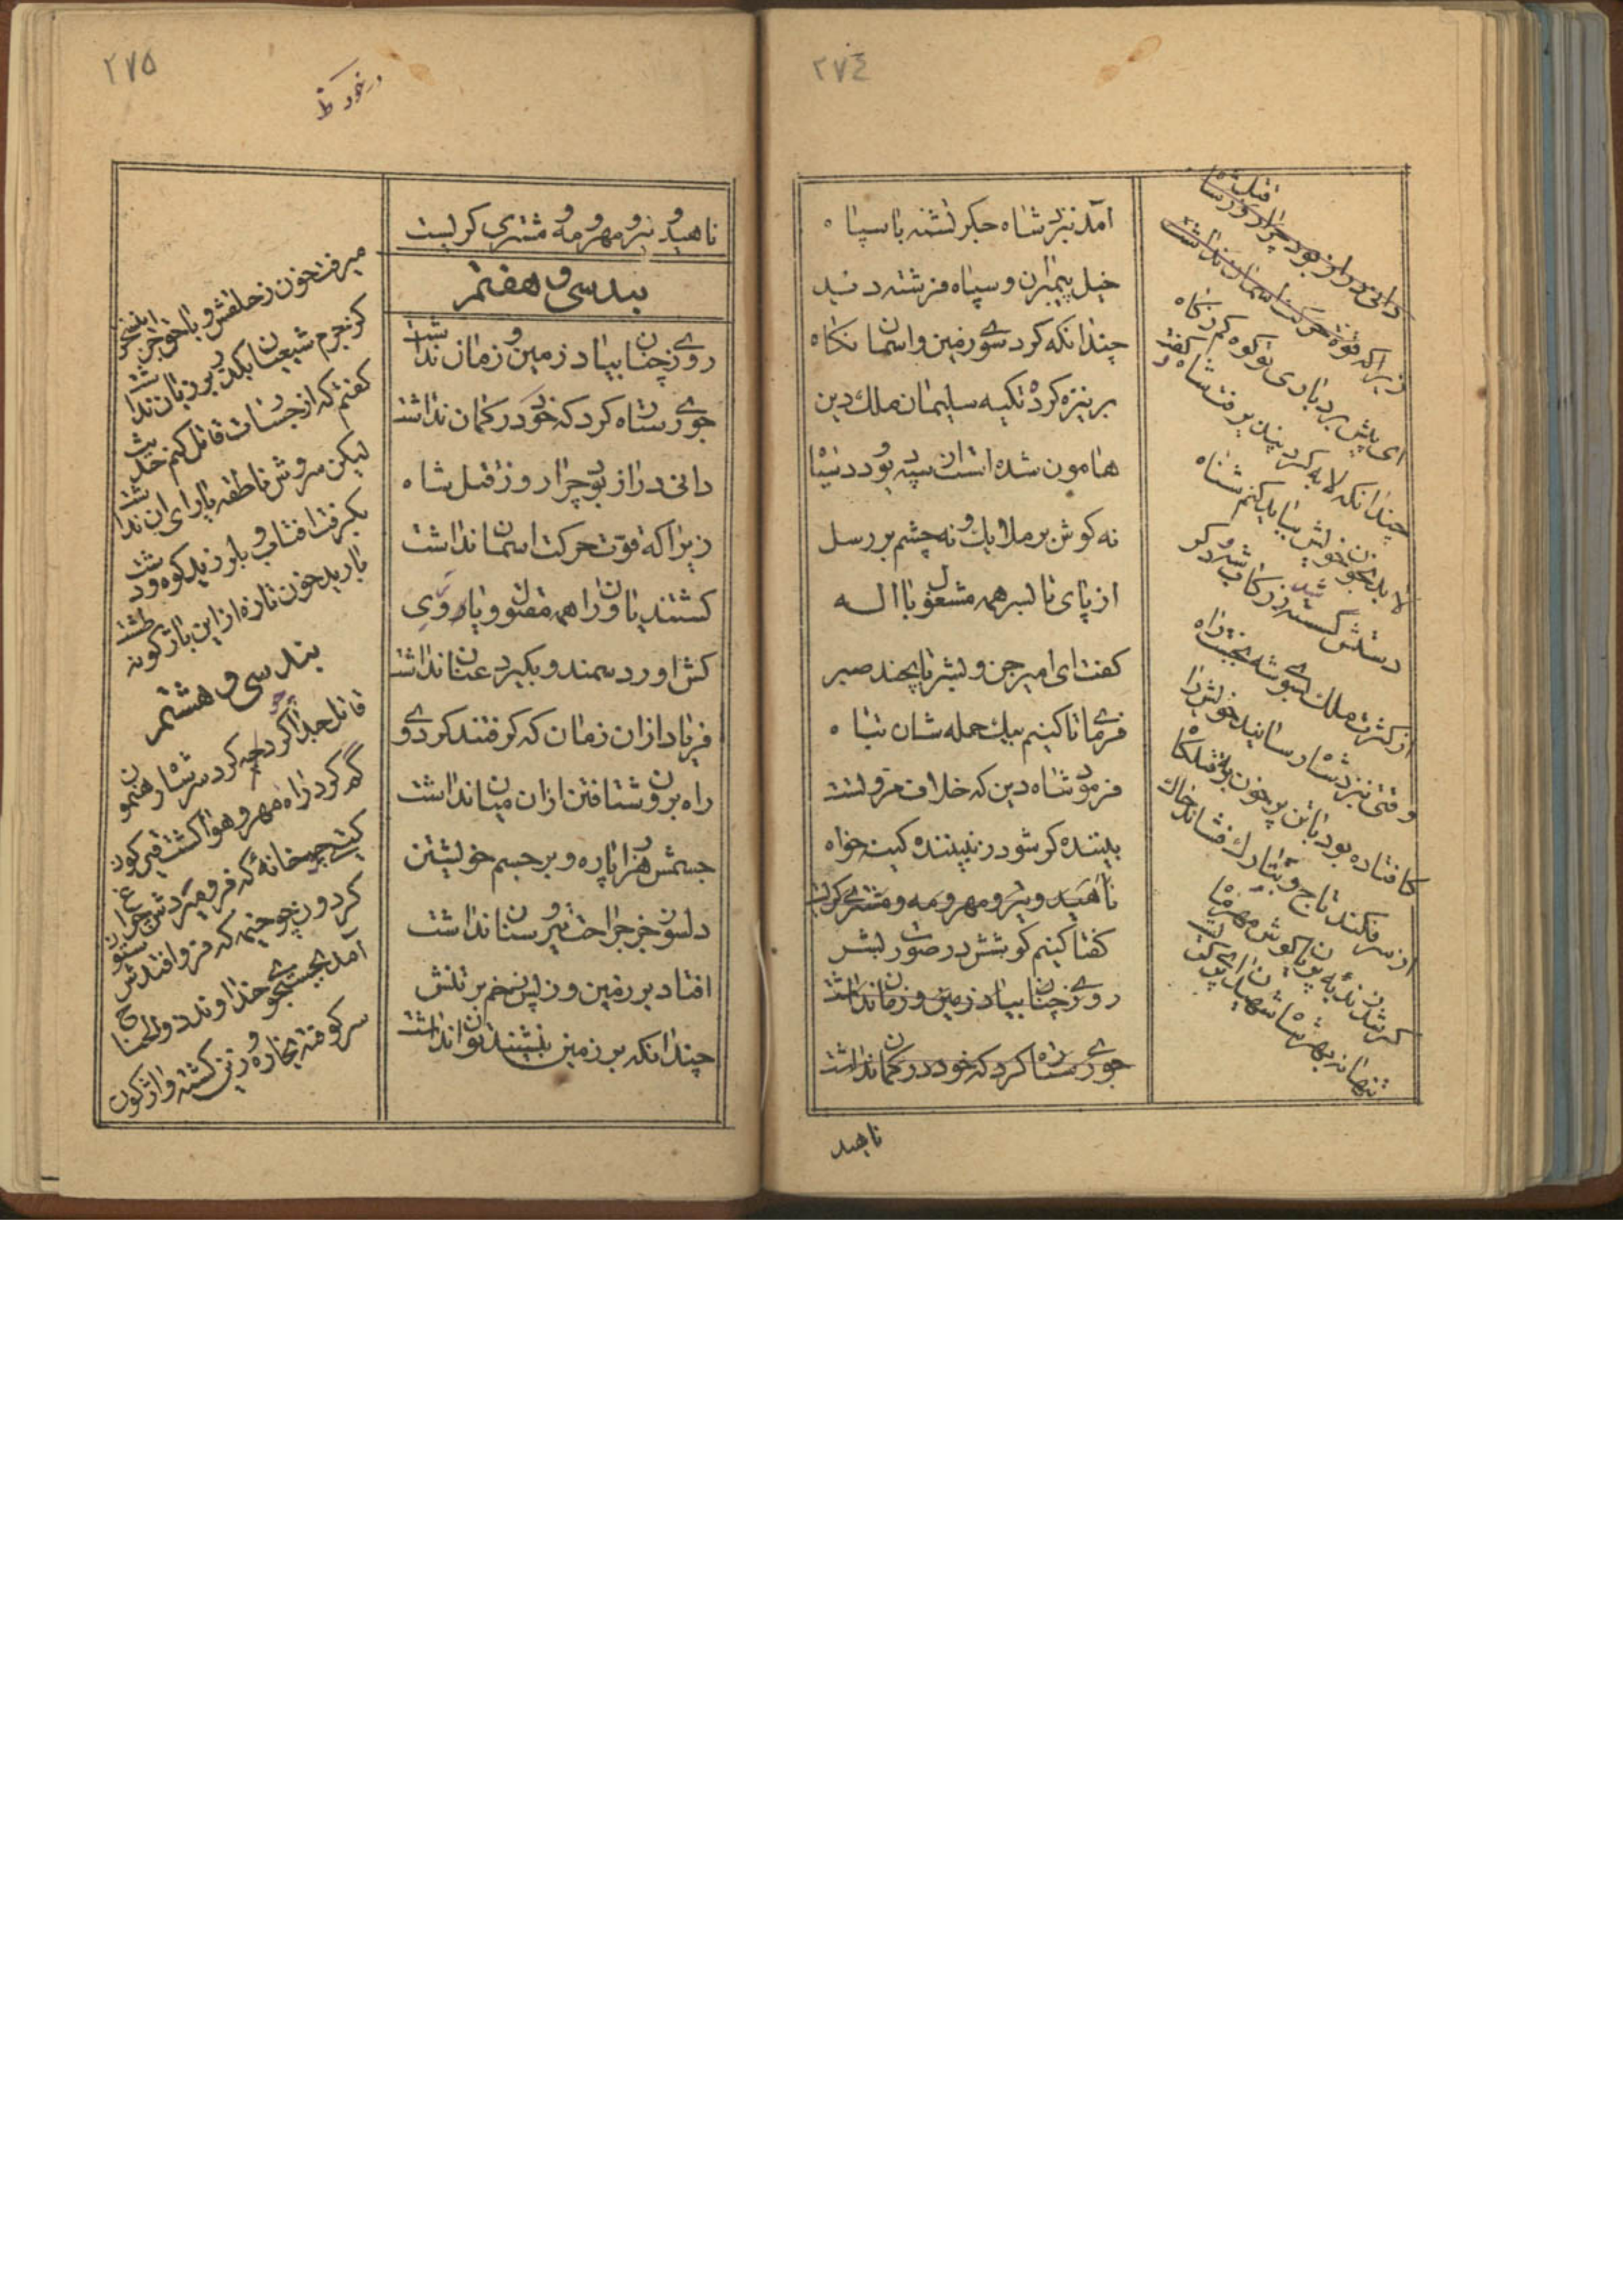 ٢٧٤
آمد نبزد شاه جکر تشنه با سپاه
خیل پیمبران و سپاه فرشته دید
چندانکه کرد سوی زمین و اسمان نکاه
بر نیزه کرد تکیه سلیمان ملک دین
هامون شده است ان سپه بود دد نیا
نه کوش بر ملایک و نه چشم بر رسل
از پای تا بسر همه مشغول با اله
کفت ای امیر جن و بشر تا بچند صبر
فرمای تا کنیم بیک حمله شان تباه
فرمود شاه دین که خلاف مروتست
بیننده کو شود ز نبیننده کینه خواه
ناهید و تیر و مهر و مه و مشتری کریست
کفتا کنیم کوشش در صورت بشر
روزی چنان بیاد زمین و زمان نداشت
جوری رسناه کرد که خود در کمان نداشت
دانی دراز بود چرا روز قتل شاه
زیرا که قوة حرکت اسمان نداشت
ای پیش بردباری تو کوه کم ز کاه
چندانکه لابه کرد پذیرفت شاه و کفت
لابد بخون خویش بیاید کنم شناه
دستش کسسته شد ز رکاب و
از کثرت ملک بسوی شه نجست راه
وقتی نبزد شاه رسانید خویش را
کافتاده بود با تن پر خون بقتلکاه
از سر فکند تاج و بتارک فشاند خاک
کر شد ز ندبه پویان کوش مهر و ماه
تنها نه بهر شاه شهیدان
ناهید
٢٧٥
ناهید و تیر و مهر و مه و مشتری کریست
بند سی و هفتم
روزی چنان بیاد زمین و زمان نداشت
جوری رسناه کرد که خود در کمان نداشت
دانی دراز بود چرا روز قتل شاه
زیرا که قوت حرکت اسمان نداشت
کشتند یاوران را همه مقتول و یاوری
کش اورد سمند و بکیرد عنان نداشت
فریاد از ان زمان که کرفتند کرد وی
راه برون شتافتن از ان میان نداشت
جسمش هزار پاره و بر جسم خویشتن
دلسوز جز جراحت تیر و سنان نداشت
افتاد بر زمین و ز پس زخم بر تنش
چندانکه بر زمین بنشیند توان نداشت
میرفت خون ز حلقش و با خویش
کز جرم شیعیان بکذر بر زبان نداشت
کفتم که از جسارت قاتل کنم حدیث
لیکن سروش ناطقه یارای ان نداشت
بکرفت افتاب و بلرزید کوه و دشت
بارید خون تازه از این باژکونه طشت
بند سی و هشتم
قاتل جدا کرد چه کرد سر شاه رهنمون
کم کرد راه مهر و هوا کشت قیرکون
کیتی چو خانهٔ که فرو میرد ش چراغ
کردون چو خیمه که فرو افتدش ستون
آمد بجستجوی خداوند ذوالجناح
سر کوفته بخاره و زین کشته واژکون